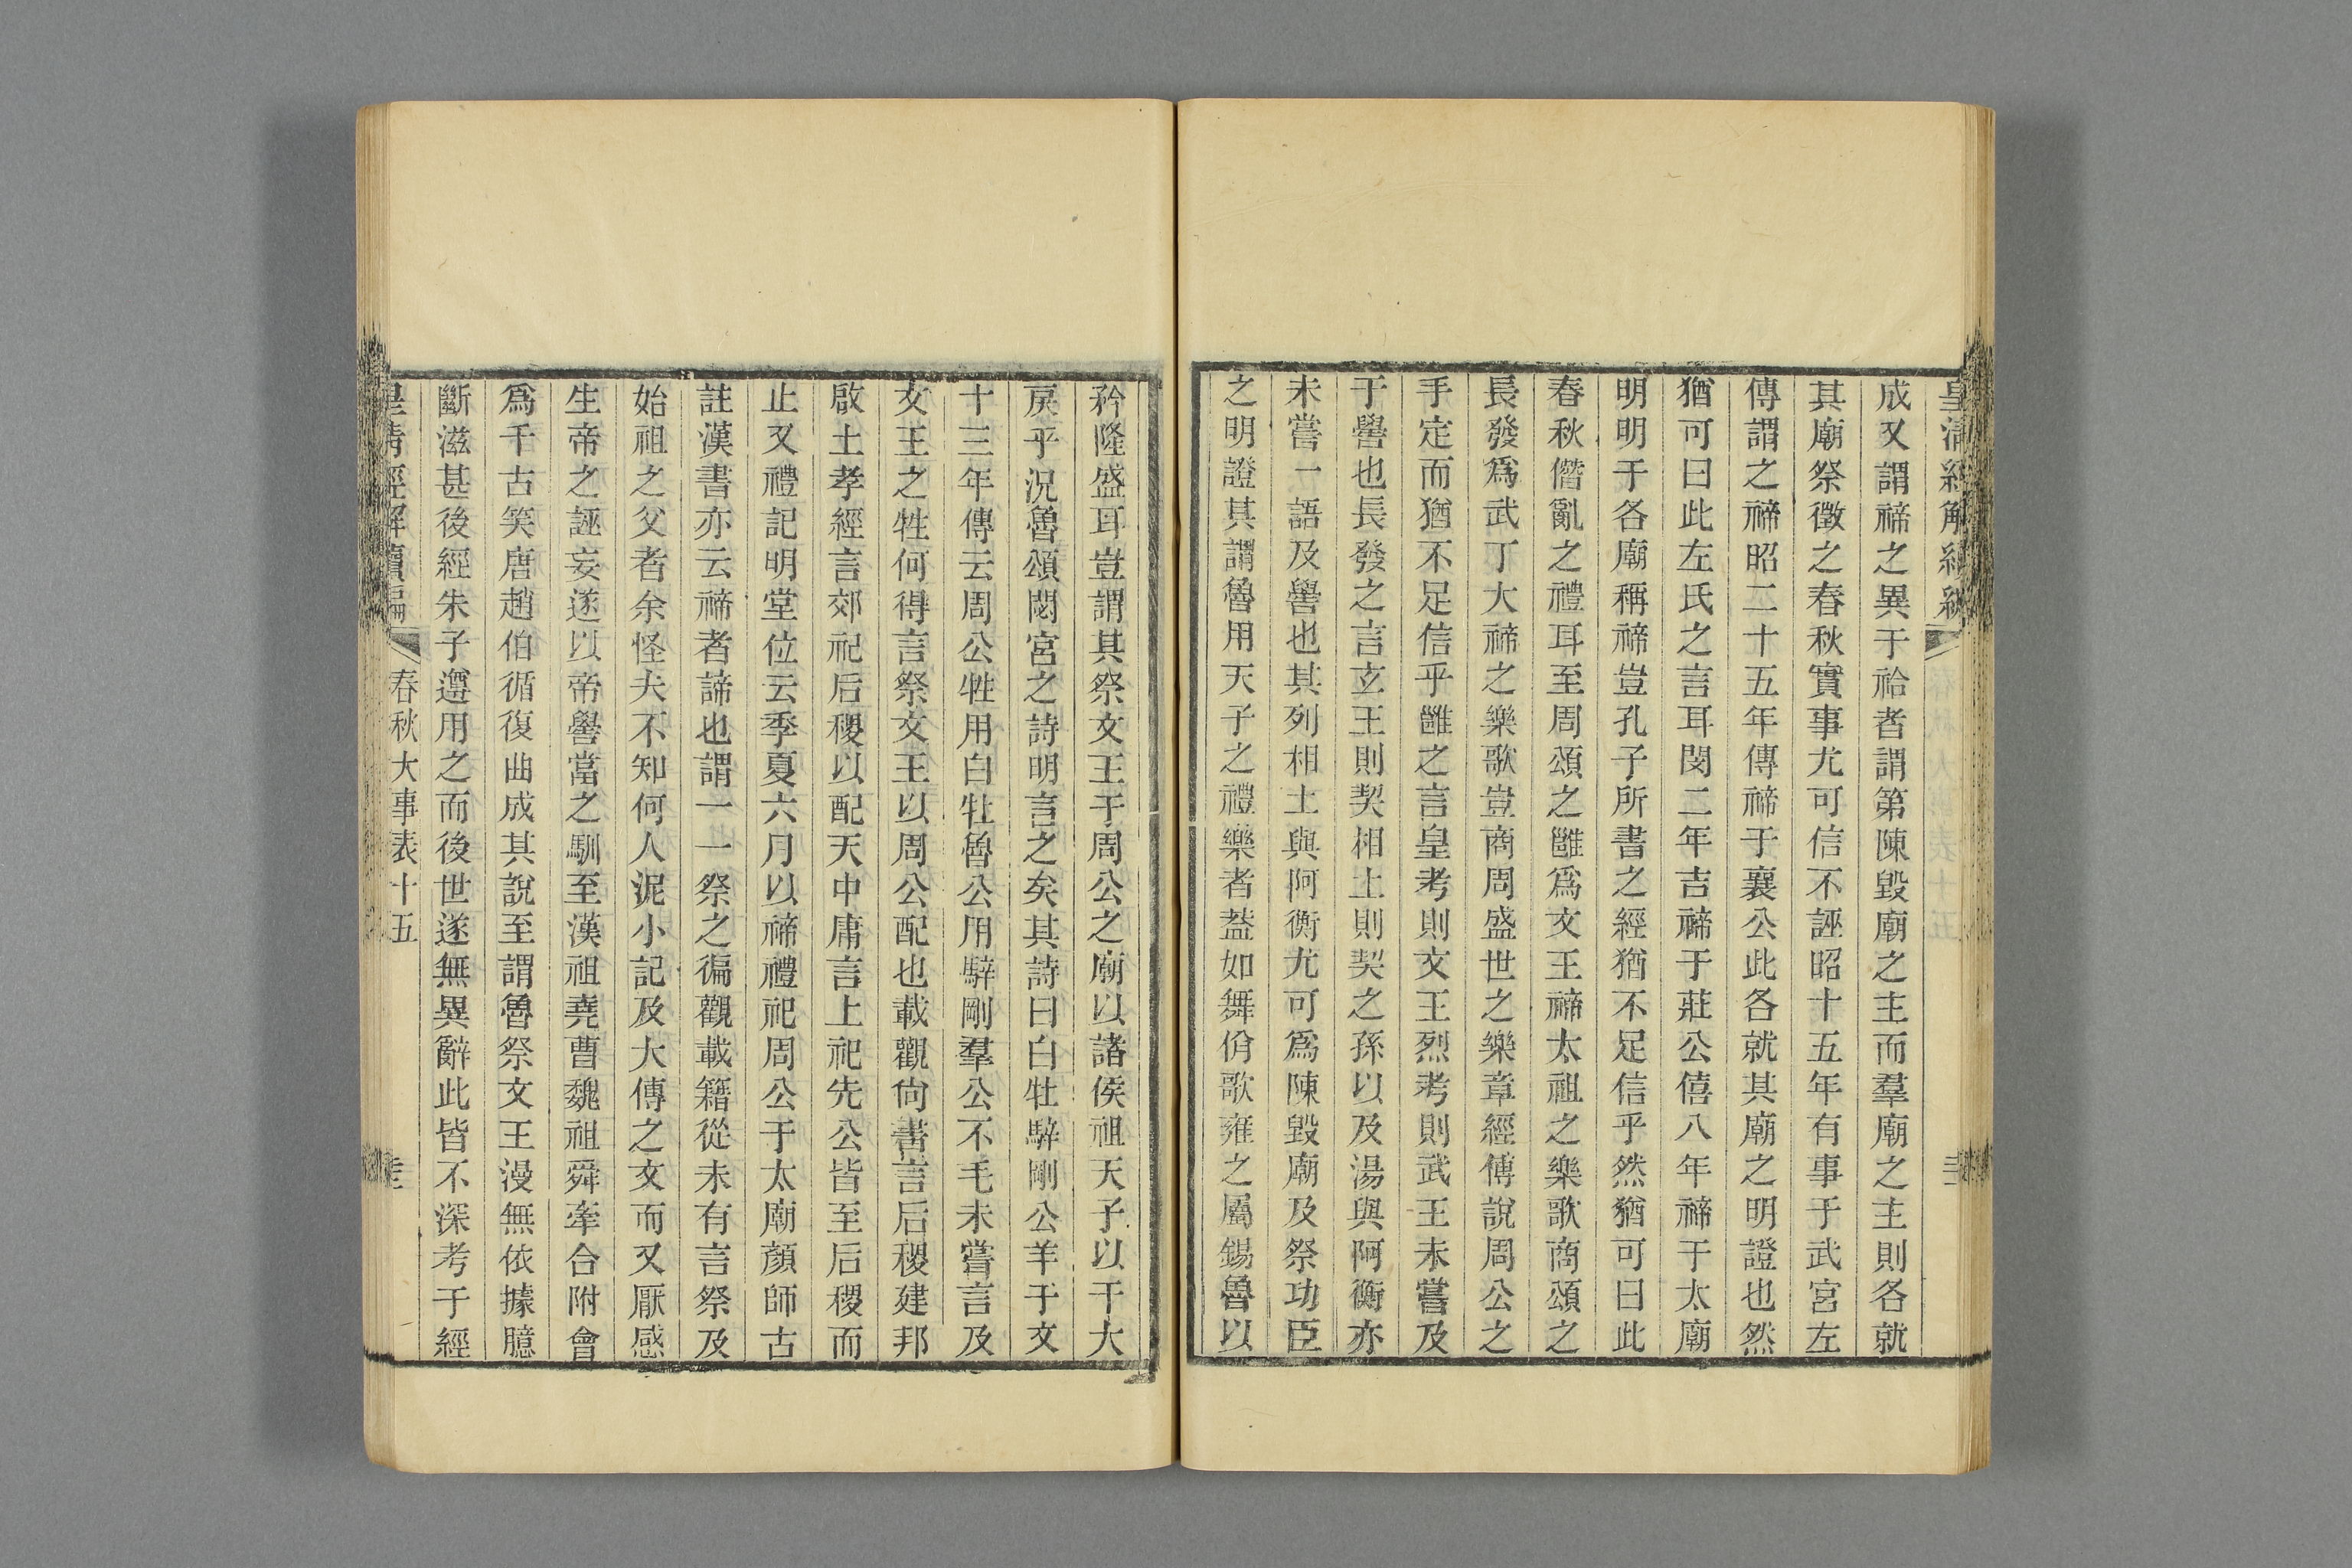 皇清經解續編
成又謂禘之異于祫者謂第陳毀廟之主而羣廟之主則各就
其廟祭徵之春秋實事尤可信不誣昭十五年有事于武宮左
傳謂之禘昭二十五年傳禘于襄公此各就其廟之明證也然
猶可曰此左氏之言耳閔二年吉禘于莊公僖八年禘于太廟
明明于各廟稱禘豈孔子所書之經猶不足信乎然猶可曰此
春秋僭亂之禮耳至周頌之雝爲文王禘太祖之樂歌商頌之
長發爲武丁大禘之樂歌豈商周盛世之樂章經傅說周公之
手定而猶不足信乎雝之言皇考則文王烈考則武王未嘗及
于嚳也長發之言玄王則契相土則契之孫以及湯與阿衡亦
未嘗一語及嚳也其列相土與阿衡尤可爲陳毀廟及祭功臣
之明證其謂魯用天子之禮樂者葢如舞佾歌雍之屬錫魯以
矜隆盛耳豈謂其祭文王于周公之廟以諸侯祖天子以干大
戾乎況魯頌閟宮之詩明言之矣其詩曰白牡騂剛公羊于文
十三年傳云周公牲用白牡魯公用騂剛羣公不毛未嘗言及
文王之牲何得言祭文王以周公配也載觀尙書言后稷建邦
啟土孝經言郊祀后稷以配天中庸言上祀先公皆至后稷而
止又禮記明堂位云季夏六月以禘禮祀周公于太廟顏師古
註漢書亦云禘者諦也謂一一祭之徧觀載籍從未有言祭及
始祖之父者余怪夫不知何人泥小記及大傳之文而又厭感
生帝之誣妄遂以帝嚳當之馴至漢祖堯曹魏祖舜牽合附會
爲千古笑唐趙伯循復曲成其說至謂魯祭文王漫無依據臆
斷滋甚後經朱子遵用之而後世遂無異辭此皆不深考于經
皇清經解續編 春秋大事表十五